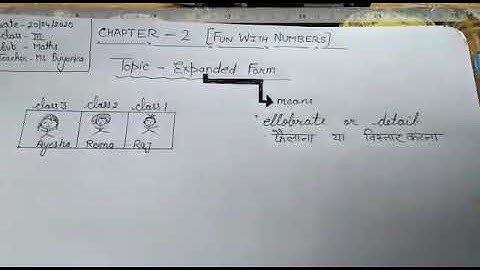 Date - 20/04/2020
Class - III
Sub - Maths
Teacher - Ms Priyanka
CHAPTER - 2 [FUN WITH NUMBERS]
Topic - Expanded Form
means
* elloberate or detail
फैलाना या विस्तार करना
class 3 class 2 class 1
Ayesha Reena Raj